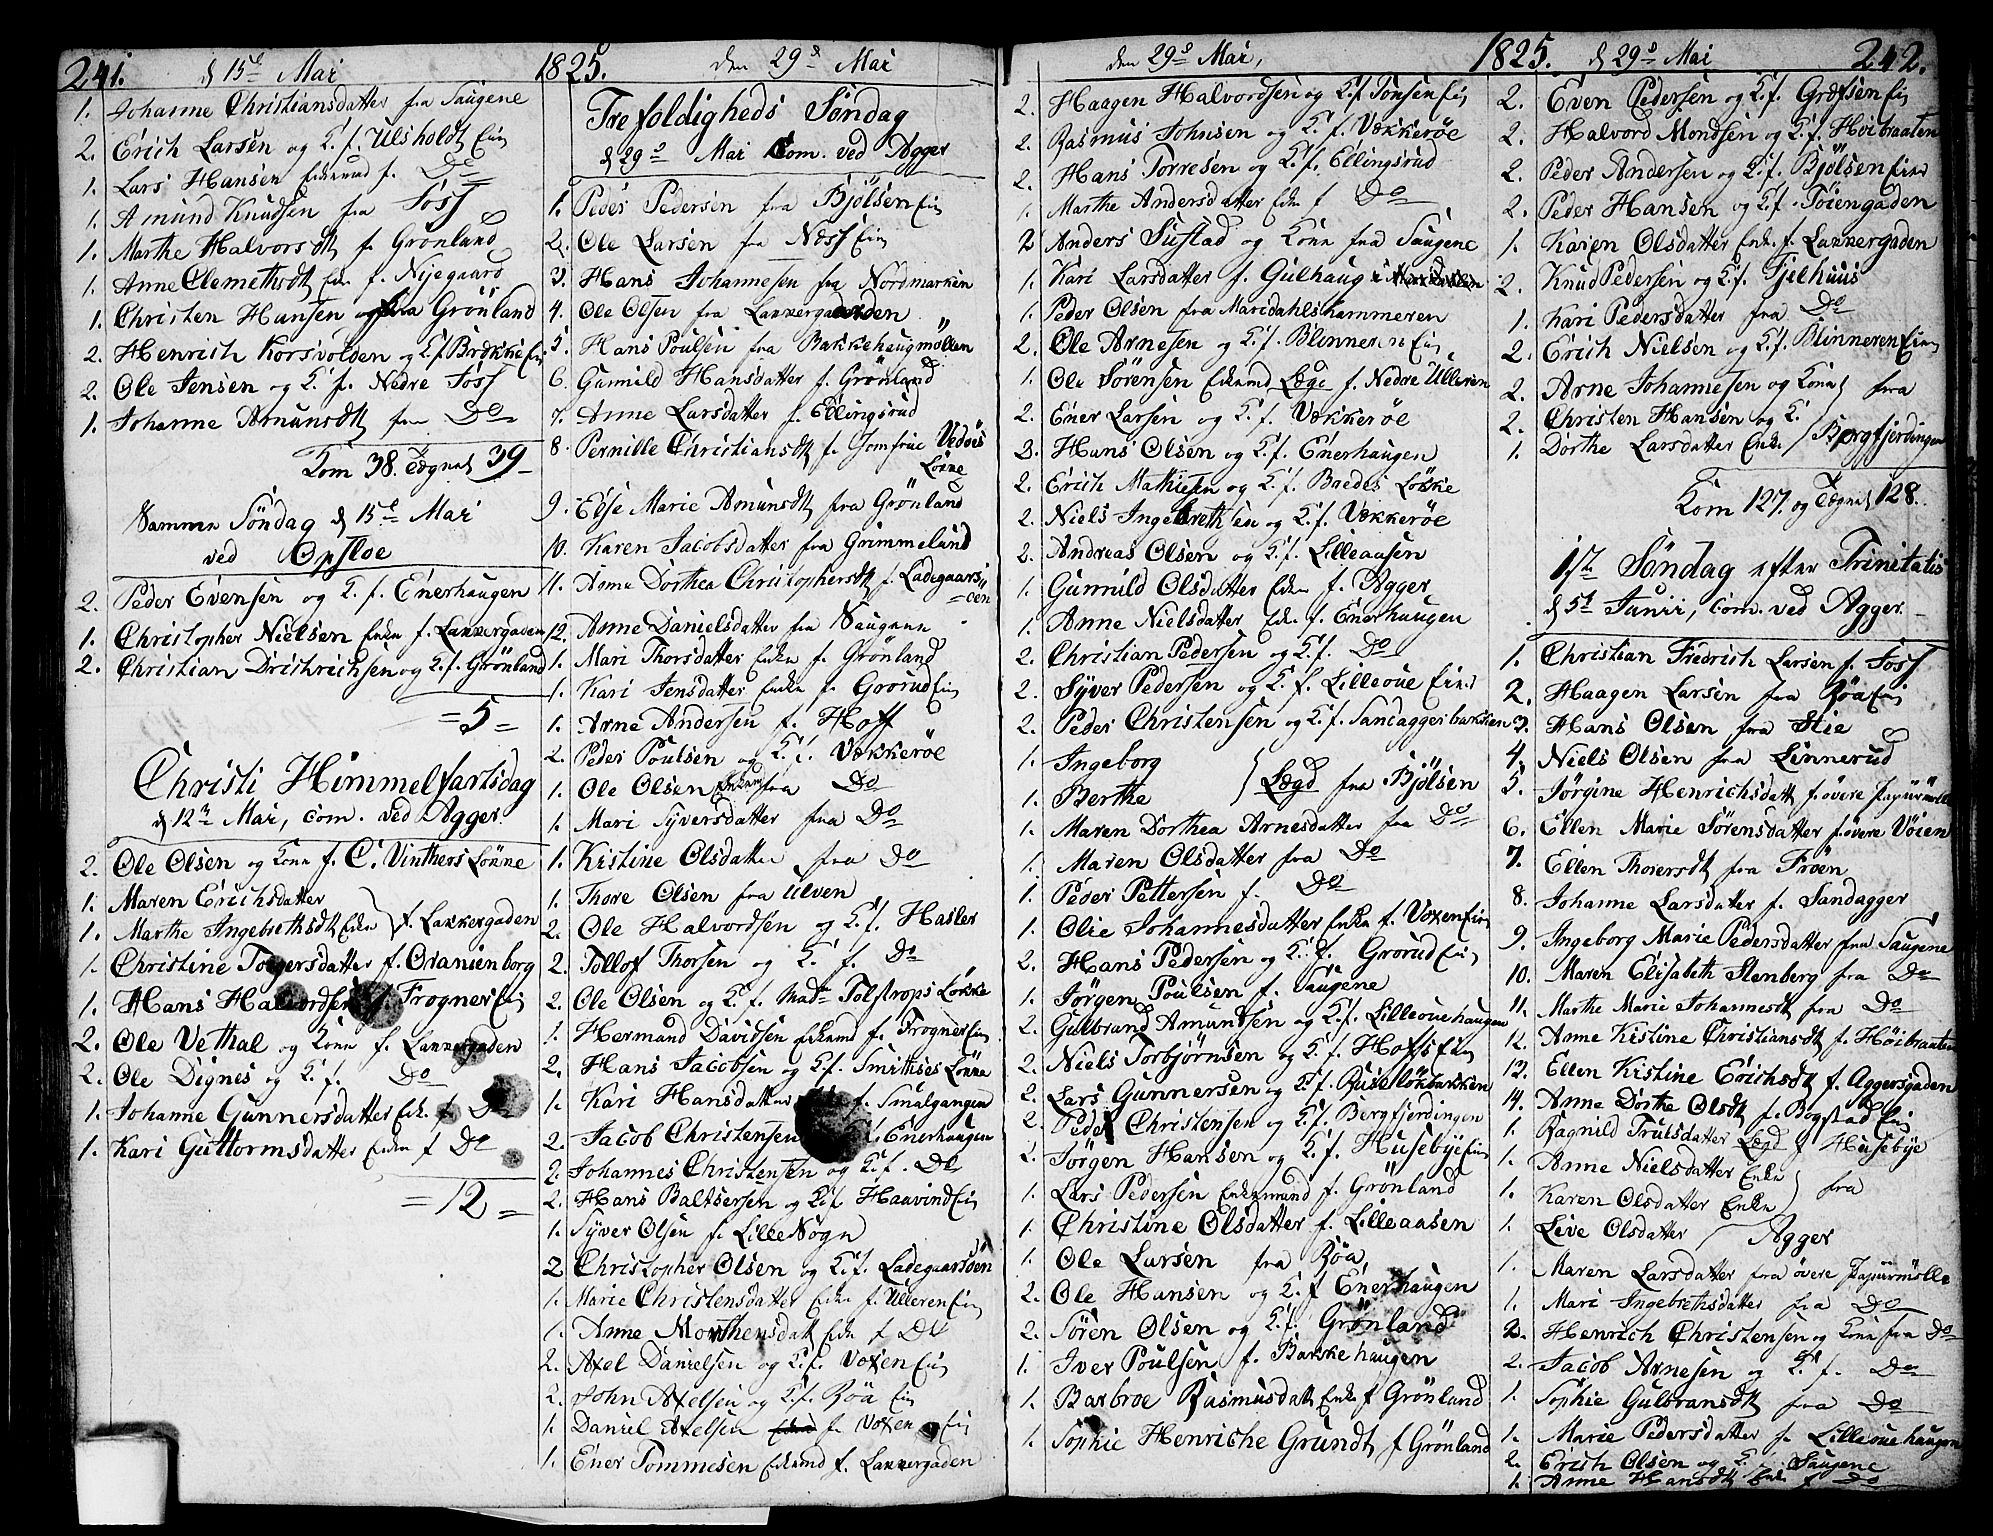 241. d 15de Mai 1825.
1. Johanne Christiansdatter fra Saugene
2. Erich Larsen og K. f. Ulsholdt Ein
1. Lars Hansen Enkemd f. Do
1. Amund Knudsen fra Foss
1. Marthe Halvorsdt f. Grönland
1. Anne Clemethsdt Enk. f. Nijegaard
1. Christen Hansen fra Grönland
2. Henrich Korsvolden og K f. Brække Ein
2. Ole Jensen og K. f. Nedre Foss
1. Johanne Amunsdt fra Do
Kom 38. Tegnet 39
Samme Söndag d 15de Mai
ved Opsloe
2. Peder Evensen og K. f. Enerhaugen
1. Christopher Nielsen Enkm f. Lakkergaden
2. Christian Drichreichsen og K. f. Grönland
= 5 =
Christi Himmelfartsdag
d 12te Mai, com. ved Agger.
2. Ole Olsen og Kone f. C. Vinthers Lökke
1. Maren Erichsdatter
1. Marthe Ingebrethsdt Enke } f. Lakkergaden
1. Christine Torgersdatter f. Oranienborg
1. Hans Halvordsen f Frogner Ein
2. Ole Vethal og Kone f. Lakkergaden
2. Ole Dignes og K. f. Do
1. Johanne Gunnersdatter Enk. f Do
1. Kari Guttormsdatter Enke f Do
= 12 =
den 29de Mai
Trefoldigheds Söndag
d 29de Mai Com. ved Agger
1. Peder Pedersen fra Bjölsen Ein
2. Ole Larsen fra Næss Ein
3. Hans Johannesen fra Nordmarken
4. Ole Olsen fra Lakkergaden
5. Hans Poulsen fra Bakkehaugmöllen
6. Gunnild Hansdatter f. Grönland
7. Anne Larsdatter f. Ellingsrud
8. Pernille Christiansdt f. Jomfrue Vedöes
Lökke
9. Else Marie Amunsdt fra Grönland
10. Karen Jacobsdatter fra Grimmelund
11. Anne Dorthea Christophersdt f. Ladegaards
=öen
12. Anne Danielsdatter fra Saugene
1. Mari Thorsdatter Enke f. Grönland
1. Kari Jensdatter Enke f. Grorud Ein
1. Arne Andersen f. Hoff
2. Peder Poulsen og K. f. Vækkeröe
1. Ole Olsen Enkemd fra Do
1. Mari Syversdatter fra Do
1. Kistine Olsdatter fra Do
1. Thore Olsen fra Ulven
2. Ole Halvordsen og K. f. Hasler
2. Tollof Thorsen og K. f. Do
2. Ole Olsen og K. f. Madm Tolstrops Lökke
1. Hermand Davidsen Enkemd f. Frogner Ein
2. Hans Jacobsen og K f. Smithses Lökke
1. Kari Hansdatter f. Smalgangen
2. Jacob Christensen f. Enerhaugen
2. Johannes Christensen og K. f. Do
2. Hans Baltsersen og K f Haavind Ein
1. Syver Olsen f. Lille Sogn
2 Christopher Olsen og K. f. Ladegaardsöen
1. Marie Christensdatter Enke f. Ulleren Ein
1. Anne Morthensdatt Enke f Do
2. Axel Danielsen og K. f. Voxen Ein
2. John Axelsen og K. f. Röa Ein
1. Daniel Axelsen f. Voxen Ein
1. Ener Tommesen Enkemd f. Lakkergaden
den 29de Mai, 1825.
2. Haagen Halvordsen og K. f Tonsen Ein
2. Rasmus Johnsen og K. f. Vækkeröe
2. Hans Torresen og K. f. Ellingsrud
1. Marthe Andersdatter Enke f Do
2 Anders Sustad og Kone fra Saugene
1. Kari Larsdatter f. Gulhaug
1. Peder Olsen fra Maridahlshammeren
2. Ole Arnesen og K. f. Blinneren Ein
1. Ole Sörensen Enkemd Læge f. Nedre Ulleren
2. Ener Larsen og K. f. Vækkeröe
2. Hans Olsen og K. f. Enerhaugen
2. Erich Mathiesen og K. f. Bredes Lökke
2. Niels Ingebrethsen og K. f. Vækkeröe
2. Andreas Olsen og K. f. Lilleaasen
1. Gunnild Olsdatter Enke f. Agger
1. Anne Nielsdatter Enk. f. Enerhaugen
2. Christian Pedersen og K. f. Do
2. Syver Pedersen og K. f. Lilleoue Einr
2. Peder Christensen og K. f. Sandaggerbakken
1. Ingeborg
1. Berthe } Lægd fra Bjölsen
1. Maren Dorthea Arnesdatter fra Do
1. Maren Olsdatter fra Do
1. Peder Pettersen f. Do
1. Olie Johannesdatter Enke f. Voxen Ein
2. Hans Pedersen og K. f. Grorud Ein
1. Jörgen Poulsen f. Saugene
2. Gulbrand Amundsen og K. f. Lilleouehaugen
2. Niels Torbjörnsen og K. f. Hoffs Ein
2. Lars Gunnersen og K. f. Ruselökbakken
2. Peder Christensen og K. f. Bergfjerdingen
2. Jörgen Hansen og K. f. Husebye Ein
1. Lars Pedersen Enkemand f. Grönland
1. Christine Olsdatter f. Lilleaasen
1. Ole Larsen fra Röa
2. Ole Hansen og K. f Enerhaugen
2. Sören Olsen og K. f. Grönland
1. Iver Poulsen f. Bakkehaugen
1. Barbroe Rasmusdatt Enke f Grönland
1. Sophie Henriche Grundt f Grönland
d 29de Mai 242.
2. Even Pedersen og K. f. Græfsen Ein
2. Halvord Mondsen og K. f. Höibraaten
2. Peder Andersen og K. f. Bjölsen Einr
2. Peder Hansen og K. f. Töiengaden
1. Karen Olsdatter Enk. f. Lakkergaden
2. Knud Pedersen og K. f. Fjelhuus
1. Kari Pedersdatter fra Do
2. Erich Nielsen og K. f. Blinneren Ein
2. Arne Johannesen og Kone } fra
2. Christen Hansen og K.
1. Dorthe Larsdatter Enke } Bergfjerdingen
Kom 127. og Tegnet 128.
1ste Söndag efter Trinitatis
d 5te Junii, com. ved Agger.
1. Christian Fredrich Larsen f. Foss
2. Haagen Larsen fra Röa Ein
3. Hans Olsen fra Stie
4. Niels Olsen fra Linnerud
5. Jörgine Henrichsdatt f. övere Papiirmölle
6. Ellen Marie Sörensdatter f. övere Vöien
7. Ellen Thorersdt fra Fröen
8. Johanne Larsdatter f. Sandagger
9. Ingeborg Marie Pedersdatter fra Saugene
10. Maren Elisabeth Stenberg fra Do
11. Marthe Marie Johannesdt fra Do
12. Anne Kistine Christiansdt f. Höibraaten
13. Ellen Kistine Erichsdt f. Aggersgaden
14. Anne Dorthe Olsdt f. Bogstad Ein
1. Ragnild Trulsdatter Lægd f Husebye
1. Anne Nielsdatter Enke
1. Karen Olsdatter Enke } fra
1. Live Olsdatter Agger
1. Maren Larsdatter fra övere Papiirmölle
1. Mari Ingebrethsdatter fra Do
2. Henrich Christensen og Kone fra Do
2. Jacob Arnesen og K. f. Do
1. Sophie Gulbransdt fra Do
1. Marie Pedersdatter f. Lilleouehaugen
2. Erich Olsen og K. f Saugene
1. Anne Hansdt Enk f Do